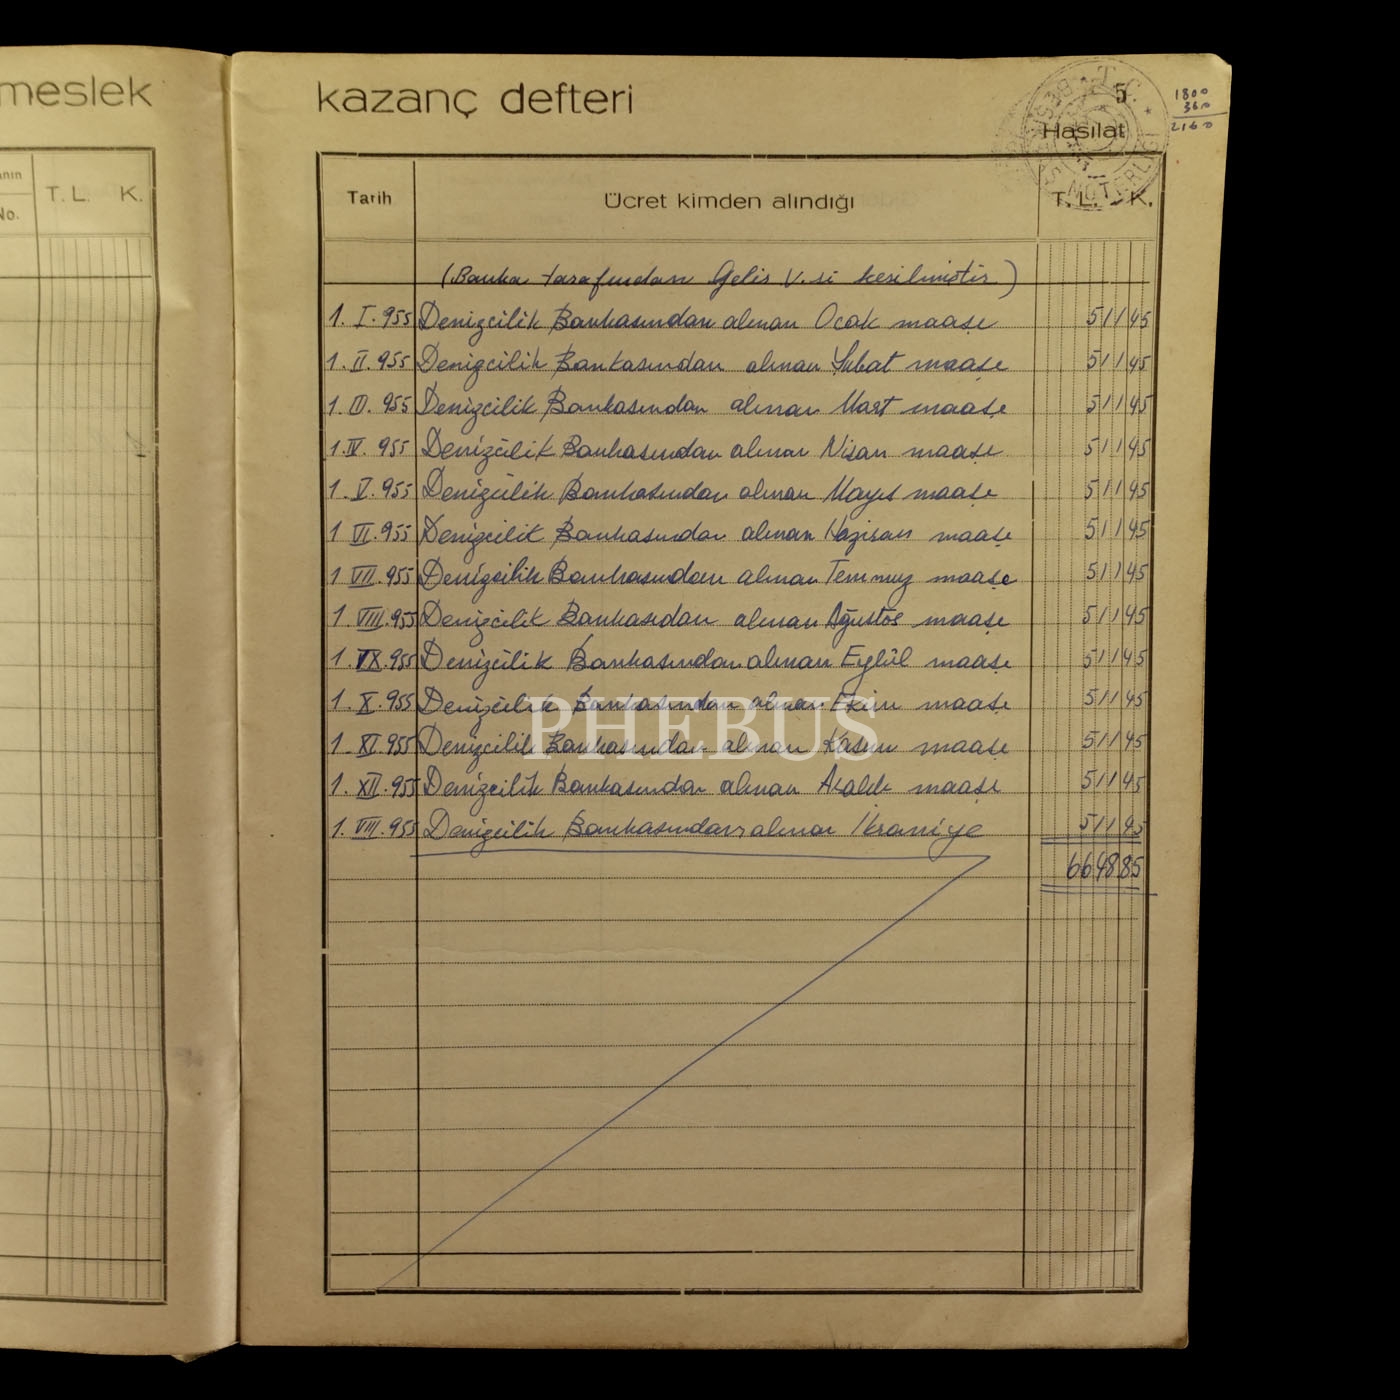 meslek
anın
No.
T. L. K.
kazanç defteri
5
Hasılat
1800
360
2160
T. C.
NOTERLİĞİ
Tarih Ücret kimden alındığı T. L. K.
(Banka tarafından Gelir V. si kesilmiştir)
1. I. 955 Denizcilik Bankasından alınan Ocak maaşı 511 45
1. II. 955 Denizcilik Bankasından alınan Şubat maaşı 511 45
1. III. 955 Denizcilik Bankasından alınan Mart maaşı 511 45
1. IV. 955 Denizcilik Bankasından alınan Nisan maaşı 511 45
1. V. 955 Denizcilik Bankasından alınan Mayıs maaşı 511 45
1 VI. 955 Denizcilik Bankasından alınan Haziran maaşı 511 45
1 VII. 955 Denizcilik Bankasından alınan Temmuz maaşı 511 45
1 VIII. 955 Denizcilik Bankasıdan alınan Ağustos maaşı 511 45
1. IX. 955 Denizcilik Bankasından alınan Eylül maaşı 511 45
1. X. 955 Denizcilik Bankasından alınan Ekim maaşı 511 45
1. XI. 955 Denizcilik Bankasından alınan Kasım maaşı 511 45
1. XII. 955 Denizcilik Bankasından alınan Aralık maaşı 511 45
1. VIII. 955 Denizcilik Bankasından alınan İkramiye 511 45
6648 85
PHEBUS